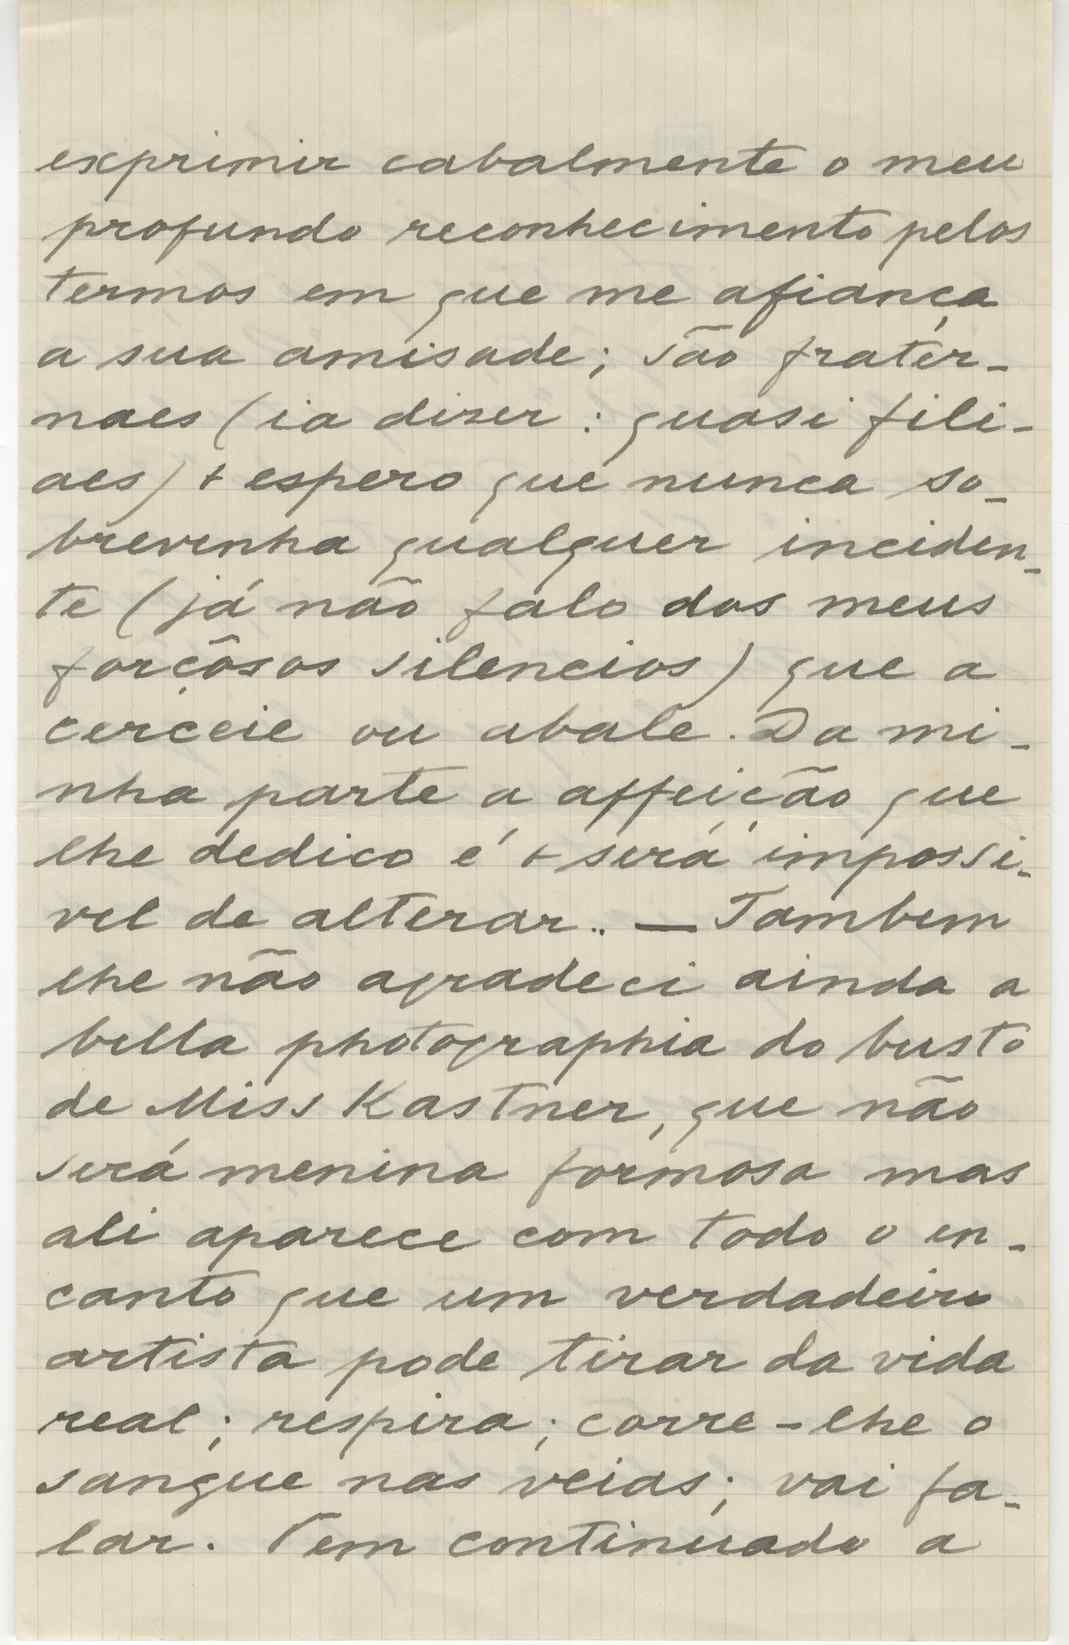 exprimir cabalmente o meu
profundo reconhecimento pelos
termos em que me afiança
a sua amisade; são frater-
naes (ia dizer: quasi fili-
aes) + espero que nunca so-
brevenha qualquer inciden-
te (já não falo dos meus
forçôsos silencios) que a
cerceie ou abale. Da mi-
nha parte a affeição que
lhe dedico é + será impossi-
vel de alterar.. — Tambem
lhe não agradeci ainda a
bella photographia do busto
de Miss Kastner, que não
será menina formosa mas
ali aparece com todo o en-
canto que um verdadeiro
artista pode tirar da vida
real; respira; corre-lhe o
sangue nas veias; vai fa-
lar. Tem continuado a